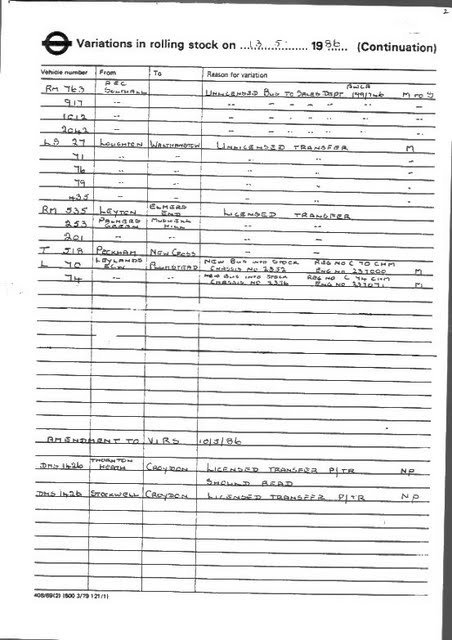 2
Variations in rolling stock on 13 . 5 . 1986 (Continuation)
Vehicle number From To Reason for variation
RM 763 AEC Southall Unlicensed Bus to Sales Dept
917 -- -- -- -- -- --
1012 -- -- -- -- -- --
2042 -- -- -- -- -- --
LS 27 Loughton Walthamstow Unlicensed Transfer M
71 " " "
76 " " "
79 " " "
435 " " "
RM 535 Leyton Elmers End Licensed Transfer
253 Palmers Green Muswell Hill --
201 -- -- --
T 518 Peckham New Cross --
L 70 Leylands ECW Plumstead New Bus into Stock Reg No C 70 CHM
Chassis No 2352 Eng No 237000 M
74 -- -- New Bus into Stock Reg No C 74 CHM
Chassis No 2376 Eng No 237071 M
Amendment to V.I.R.S 10/5/86
DMS 1426 Thornton Heath Croydon Licensed Transfer P/TR NP
Should Read
DMS 1426 Stockwell Croydon Licensed Transfer P/TR NP
408/69(2) 1500 3/79 121(1)